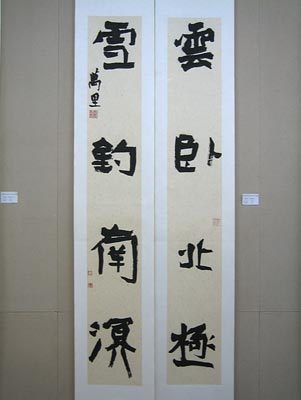 雲卧北極
雪釣南溟
萬里